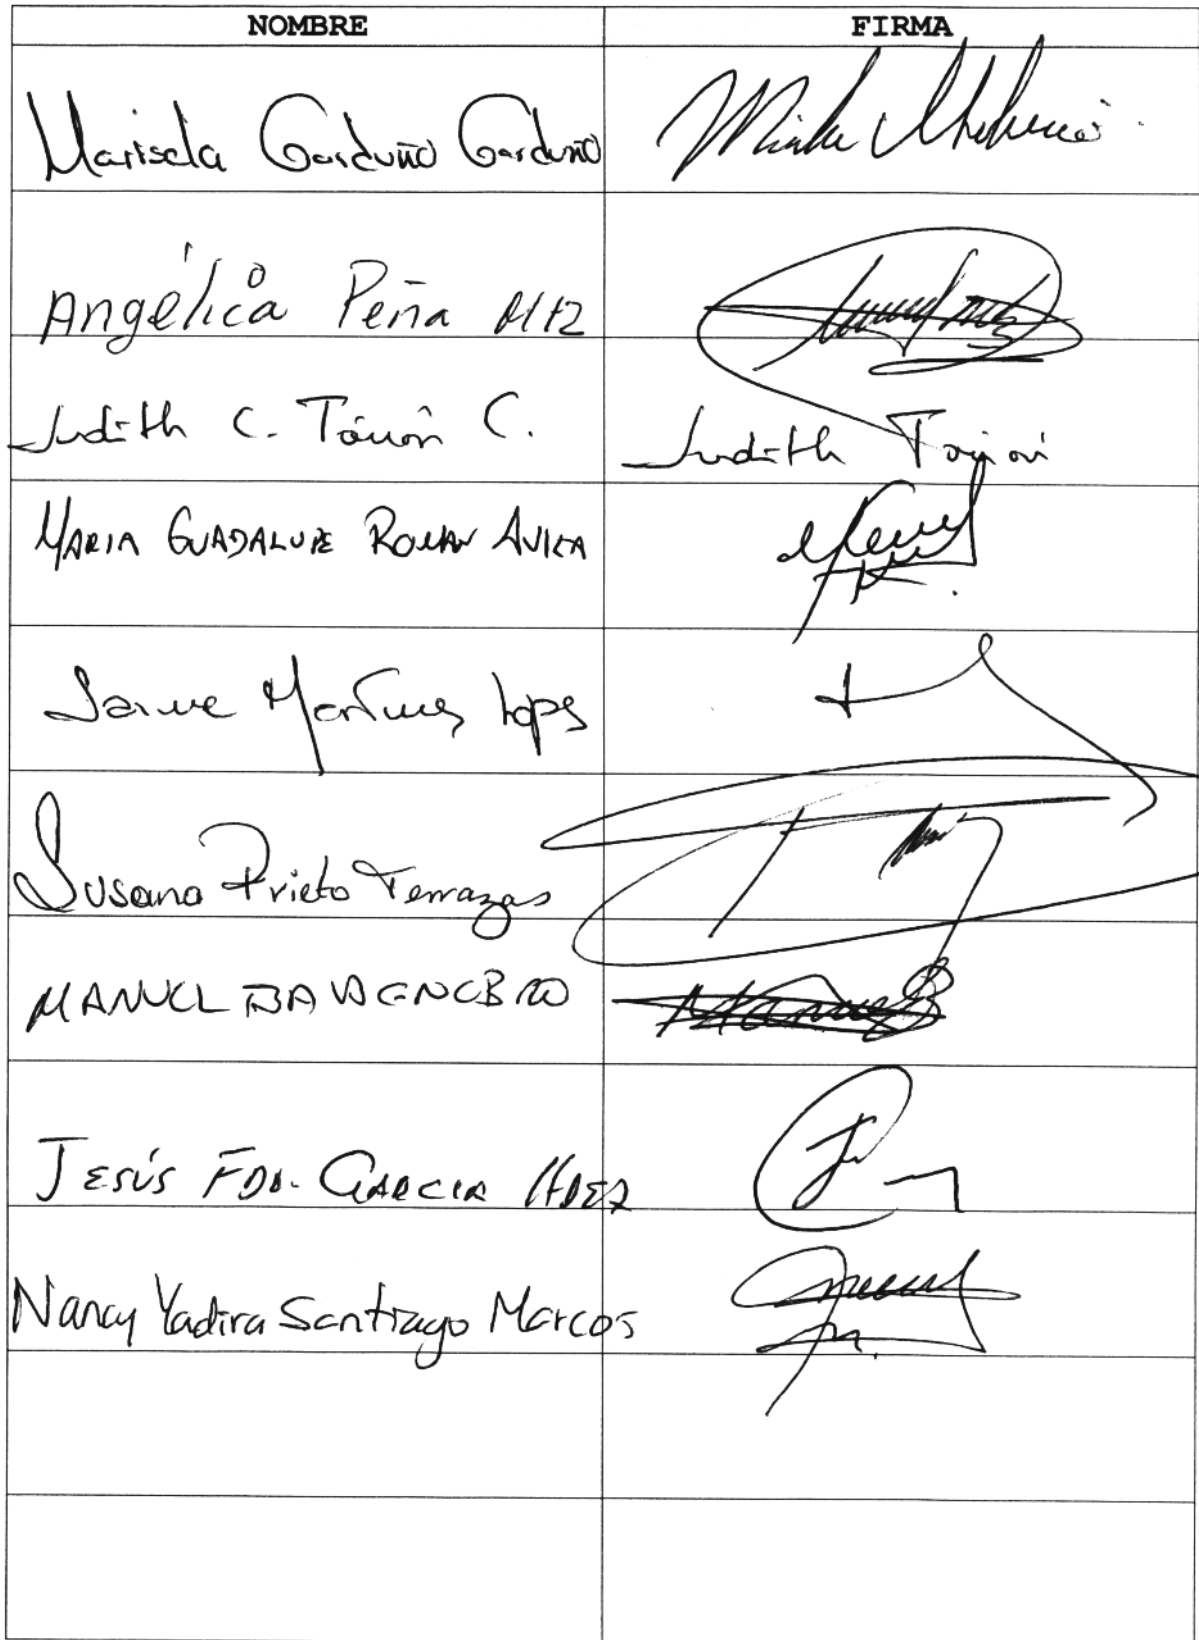 NOMBRE FIRMA
Marisela Garduño Garduño
Angélica Peña Mtz
Judith C. Tánori C. Judith Tánori
MARIA GUADALUPE ROMAN AVILA
Jaime Martinez Lopez
Susana Prieto Terrazas
MANUEL BALDENEBRO Manuel B
JESÚS FDO. GARCIA HDEZ
Nancy Yadira Santiago Marcos